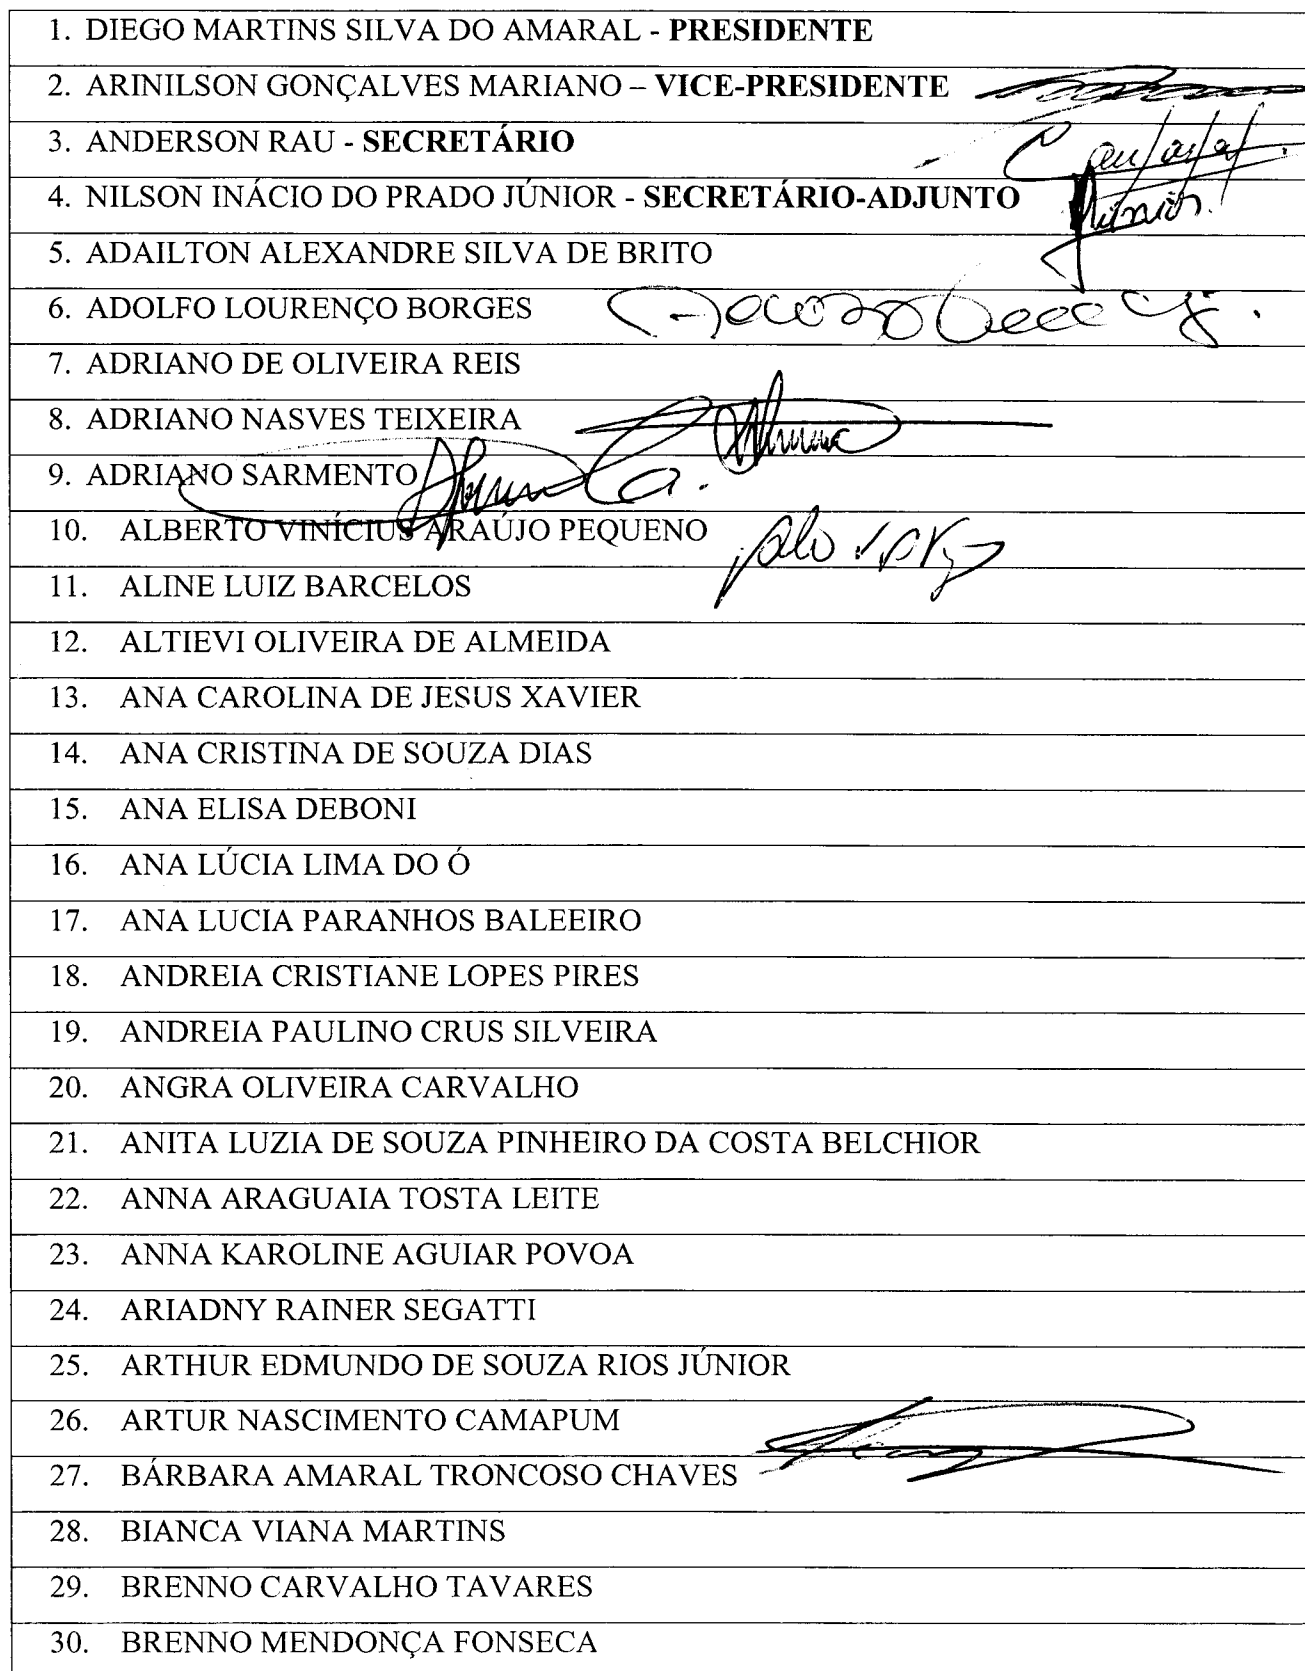 1. DIEGO MARTINS SILVA DO AMARAL - PRESIDENTE
2. ARINILSON GONÇALVES MARIANO – VICE-PRESIDENTE
3. ANDERSON RAU - SECRETÁRIO
4. NILSON INÁCIO DO PRADO JÚNIOR - SECRETÁRIO-ADJUNTO
5. ADAILTON ALEXANDRE SILVA DE BRITO
6. ADOLFO LOURENÇO BORGES
7. ADRIANO DE OLIVEIRA REIS
8. ADRIANO NASVES TEIXEIRA
9. ADRIANO SARMENTO
10. ALBERTO VINÍCIUS ARAÚJO PEQUENO
11. ALINE LUIZ BARCELOS
12. ALTIEVI OLIVEIRA DE ALMEIDA
13. ANA CAROLINA DE JESUS XAVIER
14. ANA CRISTINA DE SOUZA DIAS
15. ANA ELISA DEBONI
16. ANA LÚCIA LIMA DO Ó
17. ANA LUCIA PARANHOS BALEEIRO
18. ANDREIA CRISTIANE LOPES PIRES
19. ANDREIA PAULINO CRUS SILVEIRA
20. ANGRA OLIVEIRA CARVALHO
21. ANITA LUZIA DE SOUZA PINHEIRO DA COSTA BELCHIOR
22. ANNA ARAGUAIA TOSTA LEITE
23. ANNA KAROLINE AGUIAR POVOA
24. ARIADNY RAINER SEGATTI
25. ARTHUR EDMUNDO DE SOUZA RIOS JÚNIOR
26. ARTUR NASCIMENTO CAMAPUM
27. BÁRBARA AMARAL TRONCOSO CHAVES
28. BIANCA VIANA MARTINS
29. BRENNO CARVALHO TAVARES
30. BRENNO MENDONÇA FONSECA